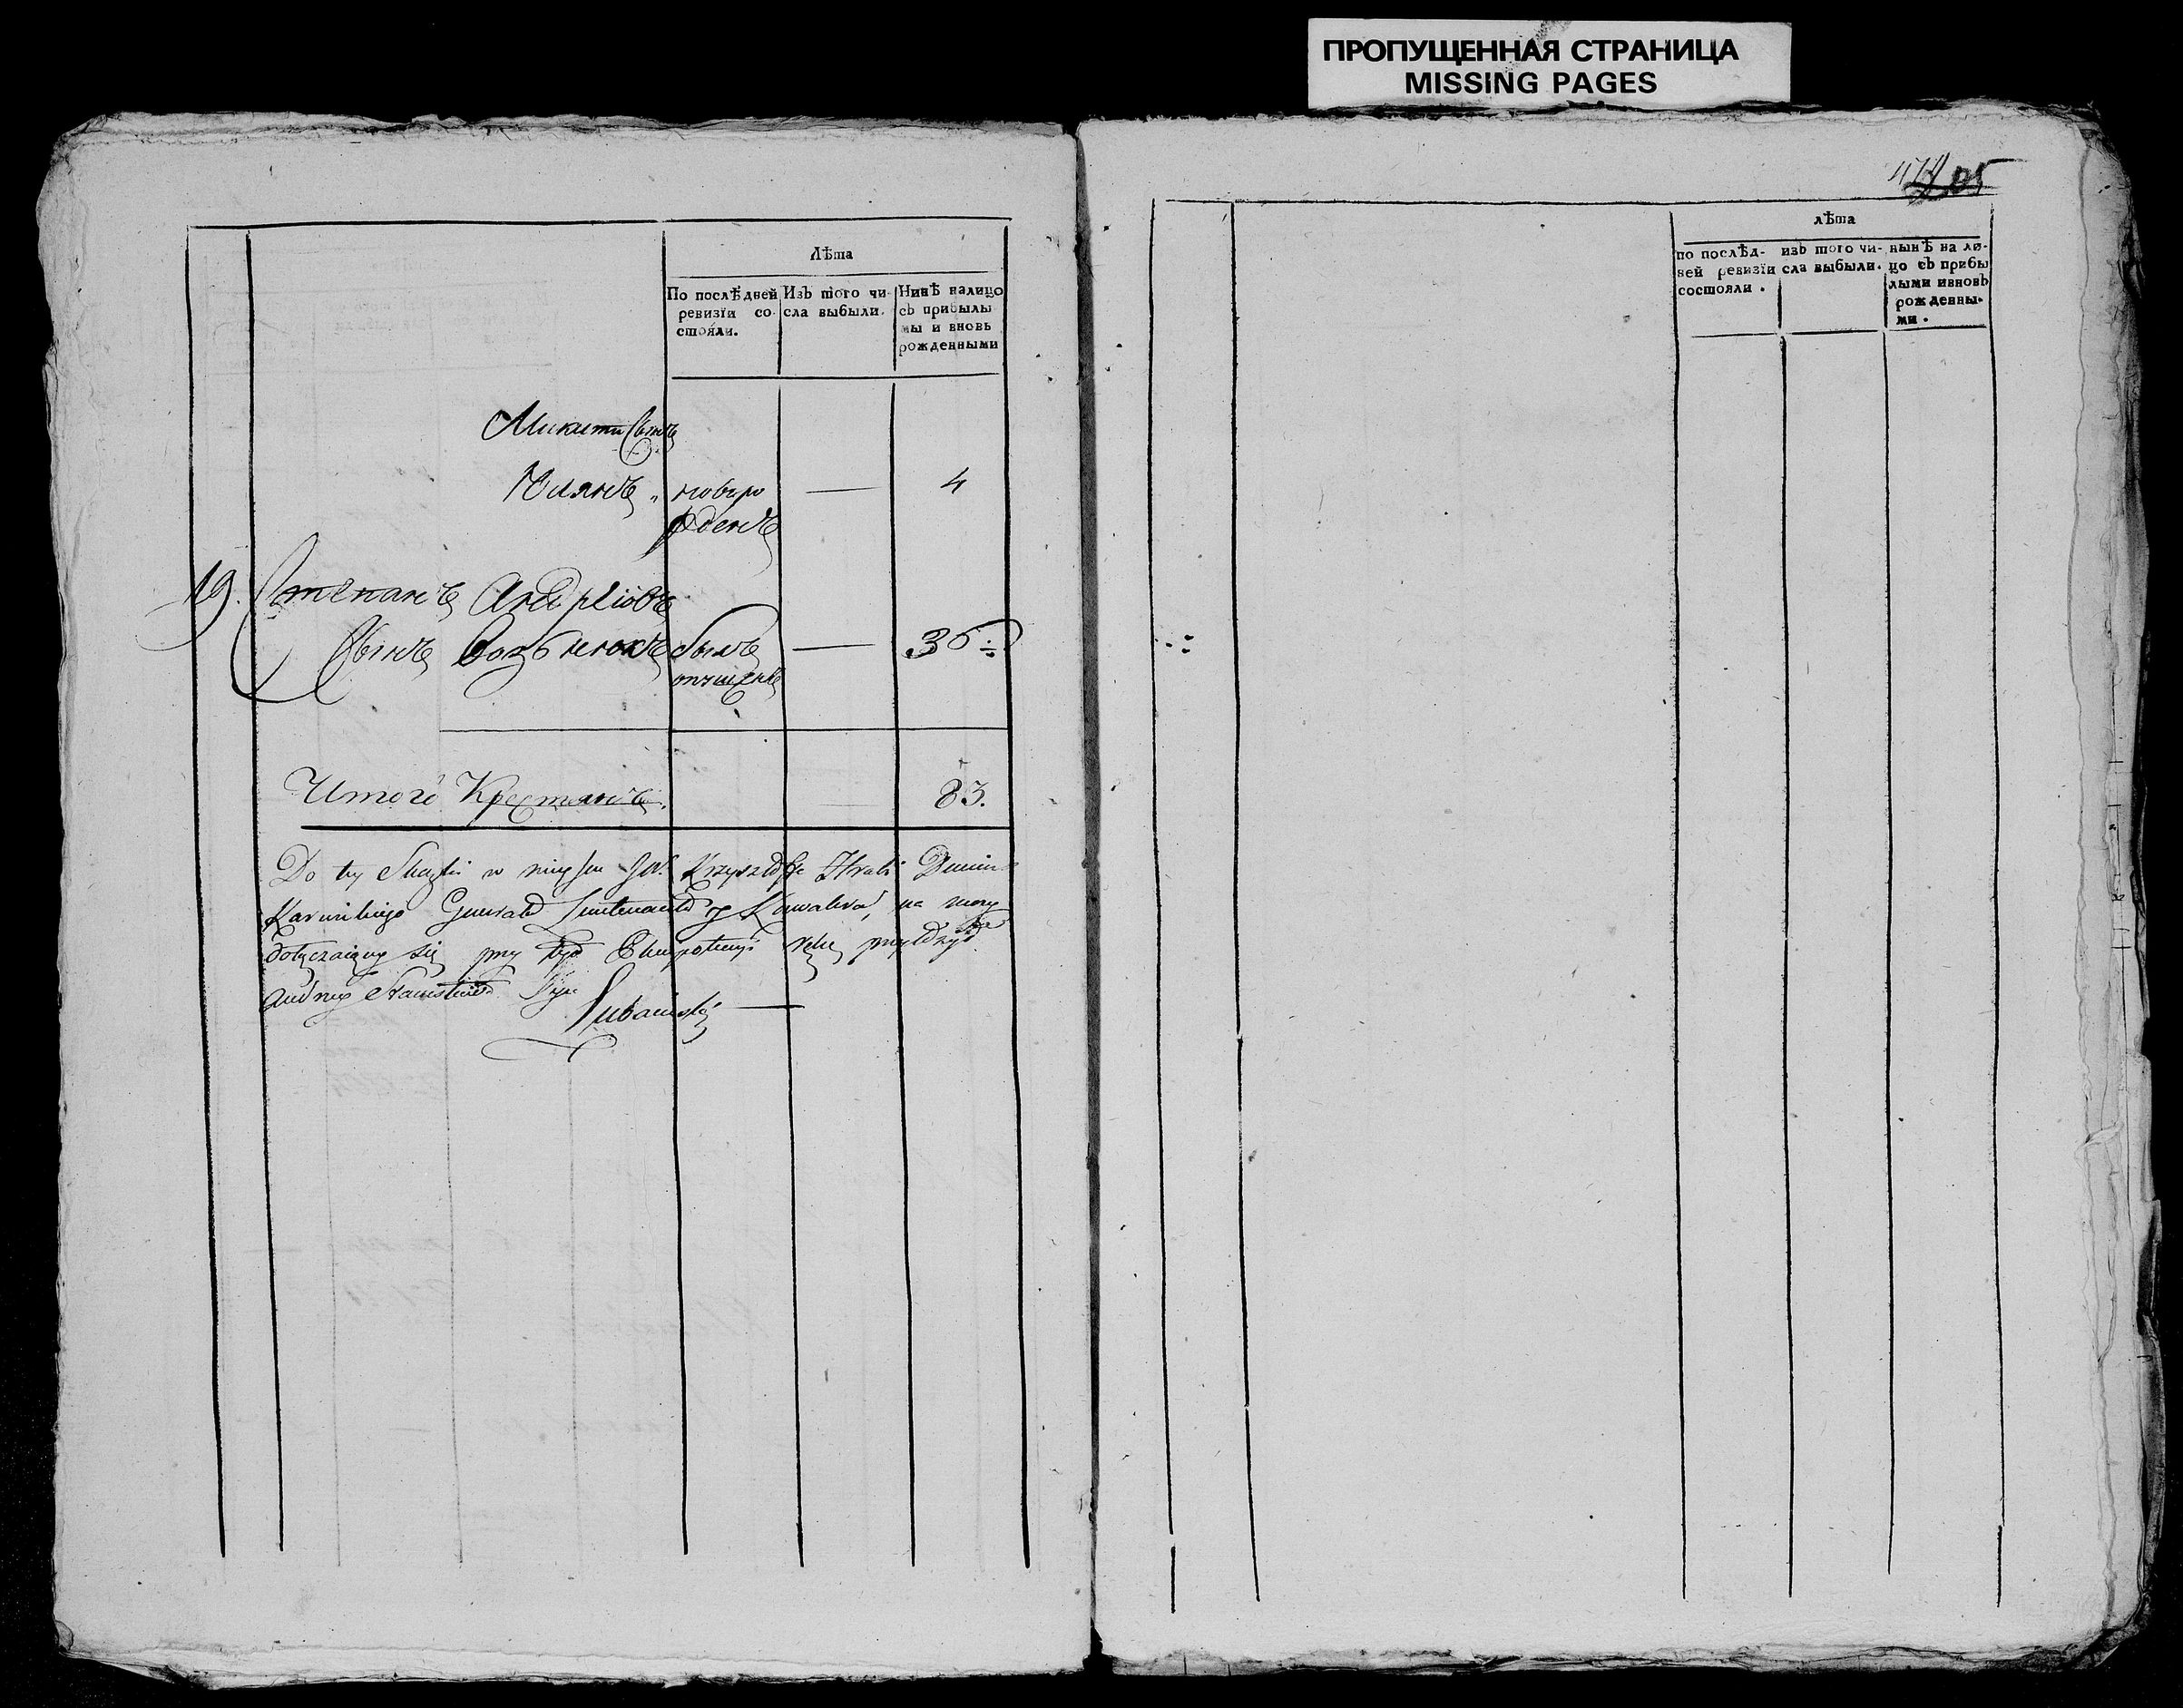 ПРОПУЩЕННАЯ СТРАНИЦА
MISSING PAGES
Лѣта
По послѣдней ревизїи состояли.
Изъ того числа выбыли.
Нинѣ налицо съ прибылы мы и вновь рожденными
Микити Сынъ
Юлянъ новоро — 4
жденъ
19. Степанъ Андріовъ
Сынъ былъ — 36
пущенъ
Итого Крестянъ 83.
Do tey Skazki w mieyscu JW. Krzysztofa Hrabi Dunin
Karwickiego Generała Leutenanta y Kawalera, na mocy
dotyczaiącey się przy tyd Plenipotencyi rękę przyłożył
Andrzey Stanisława Syn
лѣта
по послѣдней ревизїи состояли.
изъ того числа выбыли.
нынѣ на лицо съ прибылыми ивновь рожденными.